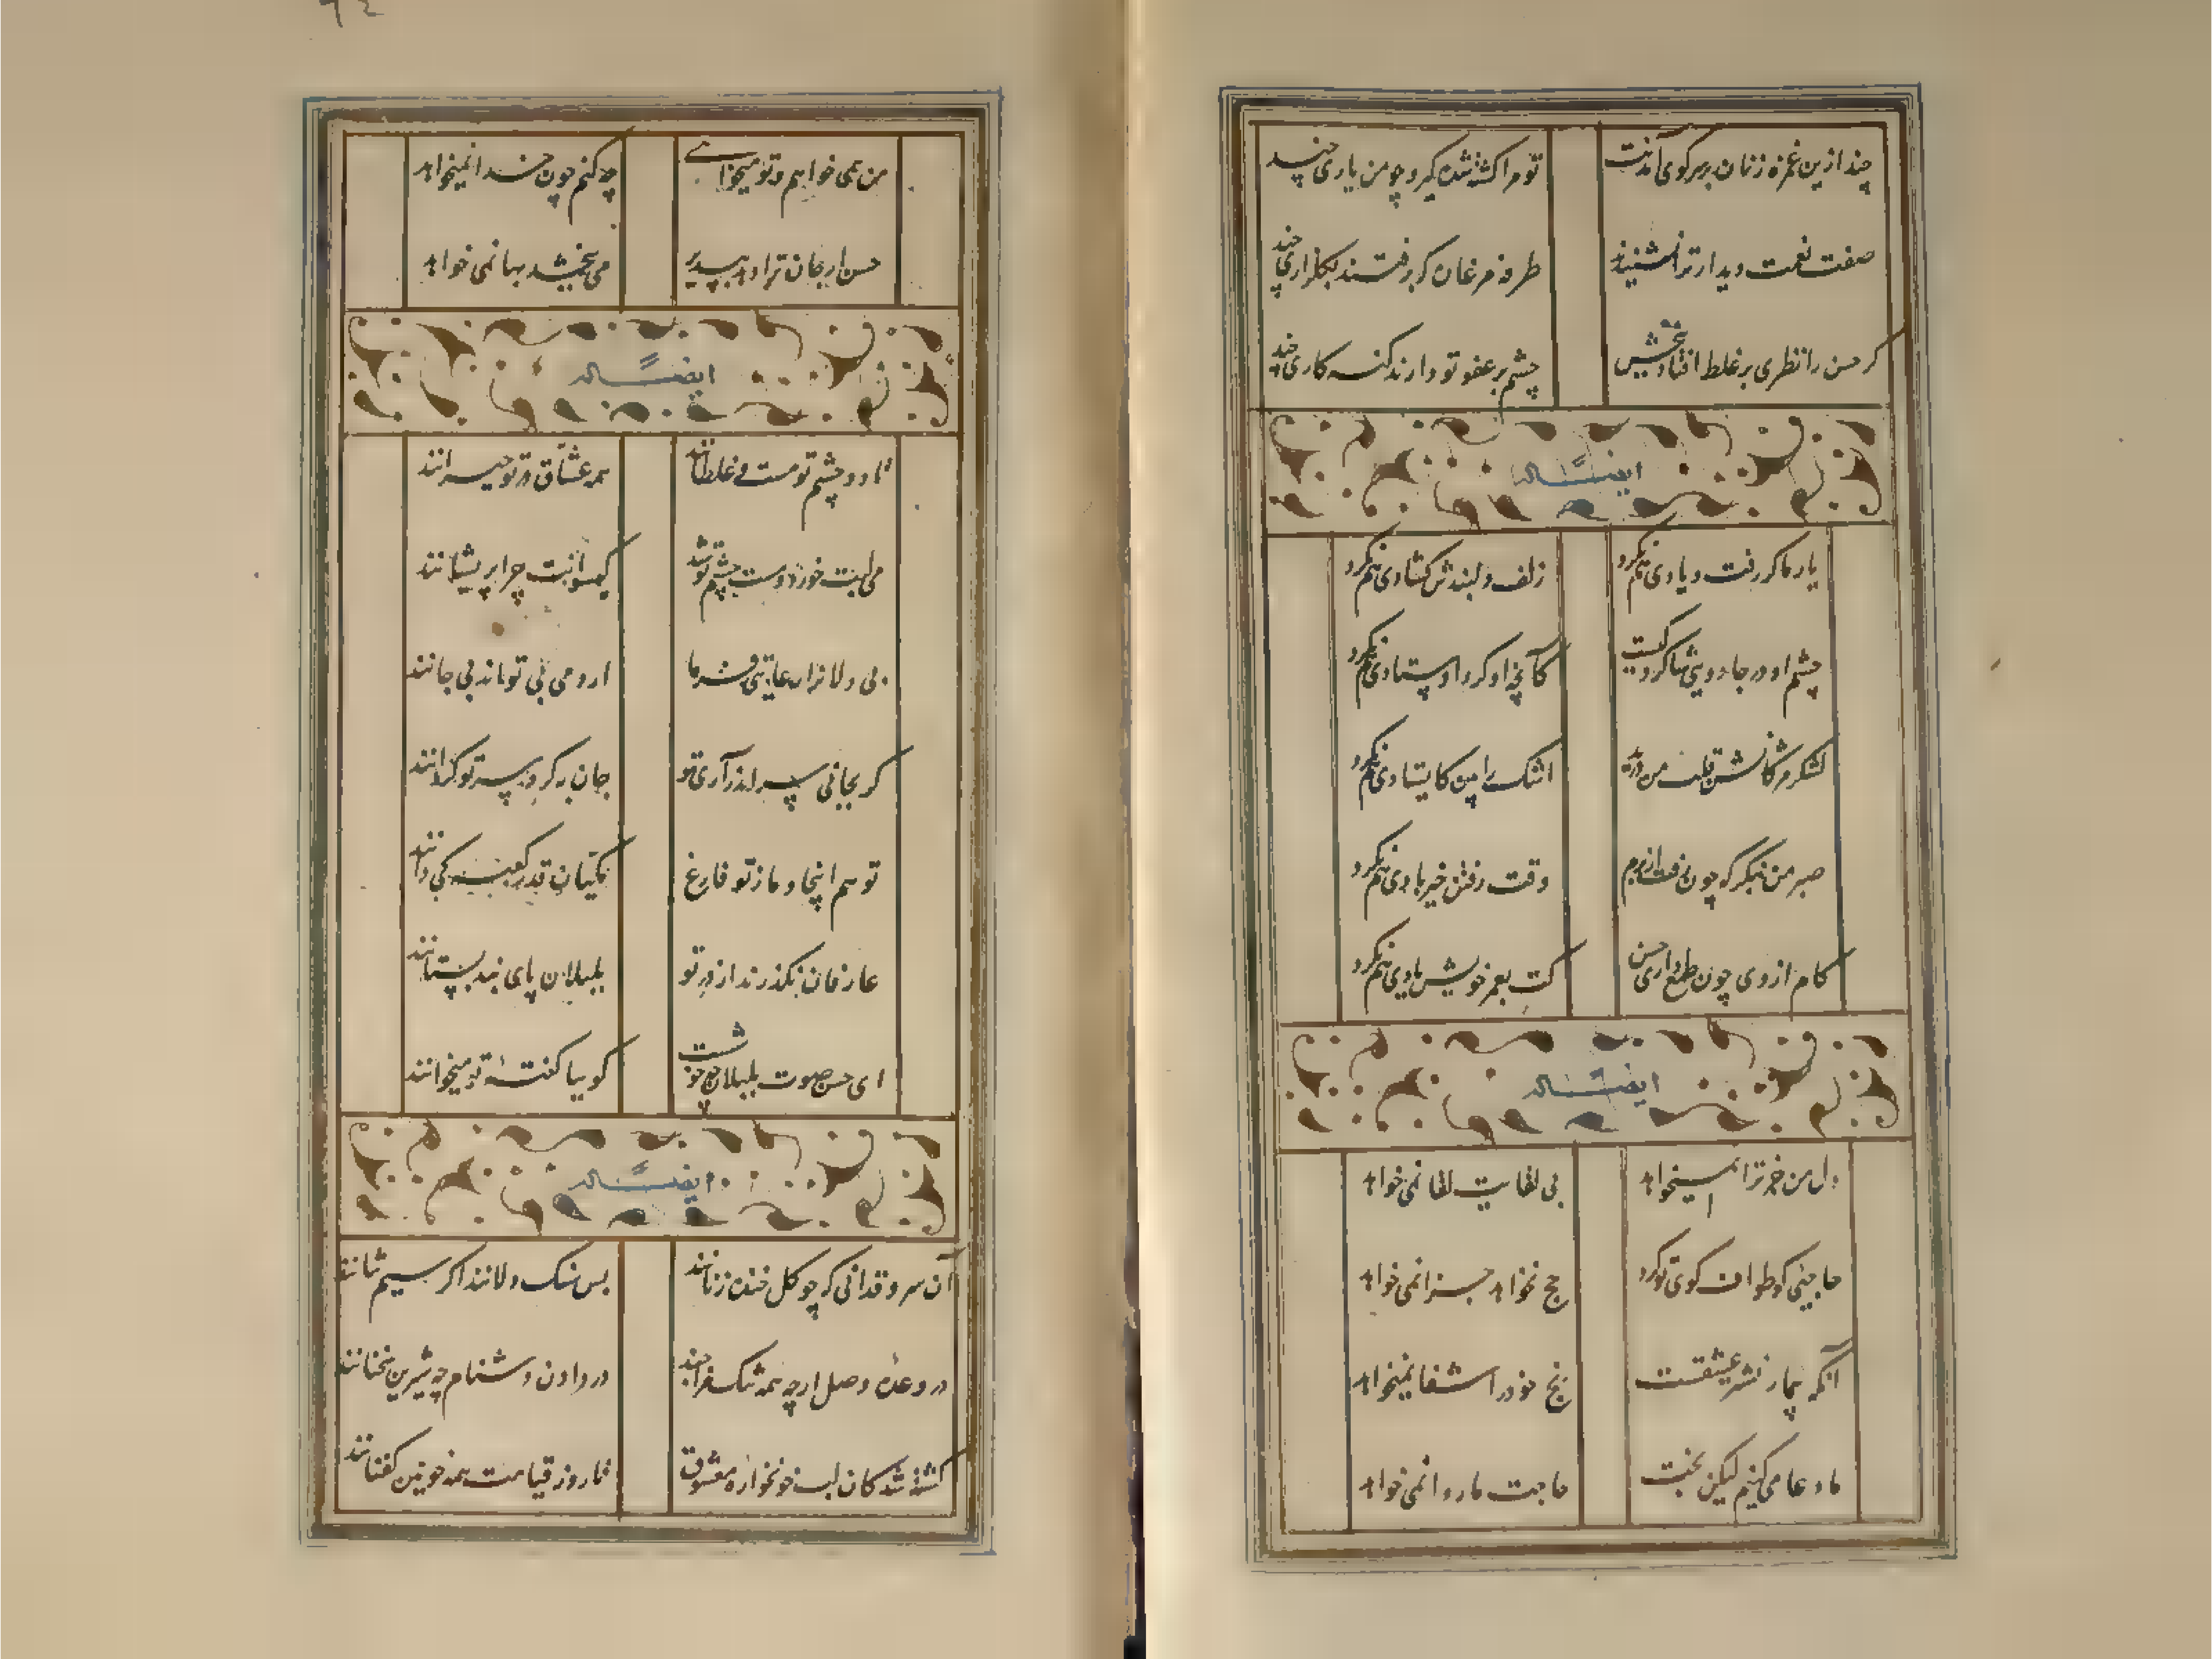 چند ازین غمزه زنان بر سر کوی آمدنت
تو مرا کشته شده گیر و چو من یاری چند
صفت نعمت دیدار ترا نشنیدند
طرفه مرغان که برفتند بگلزاری چند
گر حسن را نظری بر غلط افتاد ببخش
چشم بر عفو تو دارند گنه کاری چند
ایضاً له
یار ما گر رفت و یادی هم نکرد
زلف دلبندش گشادی هم نکرد
چشم او در جادویی شاگرد کیست
کانچه او کرد اوستادی هم نکرد
لشکر مژگانش قلب من درید
اشک را بین کایستادی هم نکرد
صبر من بنگر که چون رفت از برم
وقت رفتن خیر بادی هم نکرد
کام از وی چون طمع داری حسن
کت بعمر خویش یادی هم نکرد
ایضاً له
دل من جز ترا نمیخواهد
بی لقایت لقا نمی خواهد
حاجیی کو طواف کوی تو کرد
حج نخواهد جزا نمی خواهد
آنکه بیمار نشتر عشقت
رنج خود را شفا نمیخواهد
ما دعا می کنیم لیکن بخت
حاجت ما روا نمی خواهد
من همی خواهم و تو میخواهی
چه کنم چون خدا نمیخواهد
حسن ار جان ترا دهد بپذیر
می ببخشد بها نمی خواهد
ایضاً له
تا دو چشم تو مست و غلطانند
همه عشاق در تو حیرانند
می لبت خورد و مست چشم تو شد
گیسوانت چرا پریشانند
بی دلانرا رعایتی فرما
ار دمی بی تواند بی جانند
گر بجانی سر اندر آری تو
جان بده کز در تو گردانند
تو هم اینجا و ما ز تو فارغ
مکیان قدر کعبه کی دانند
عارفان نگذرند از در تو
بلبلان پای بند بستانند
ای حسن صوت بلبلان چه خوشست
گوییا گفتهٔ تو میخوانند
ایضاً له
آن سرو قدانی که چو گل خنده زنانند
بس سنگ دلانند اگر سیم تنانند
در وعدهٔ وصل ارچه همه تنگ مزاجند
در دادن دشنام چه شیرین سخنانند
کشته شدگان لب خونخواره معشوق
تا روز قیامت همه خونین کفنانند